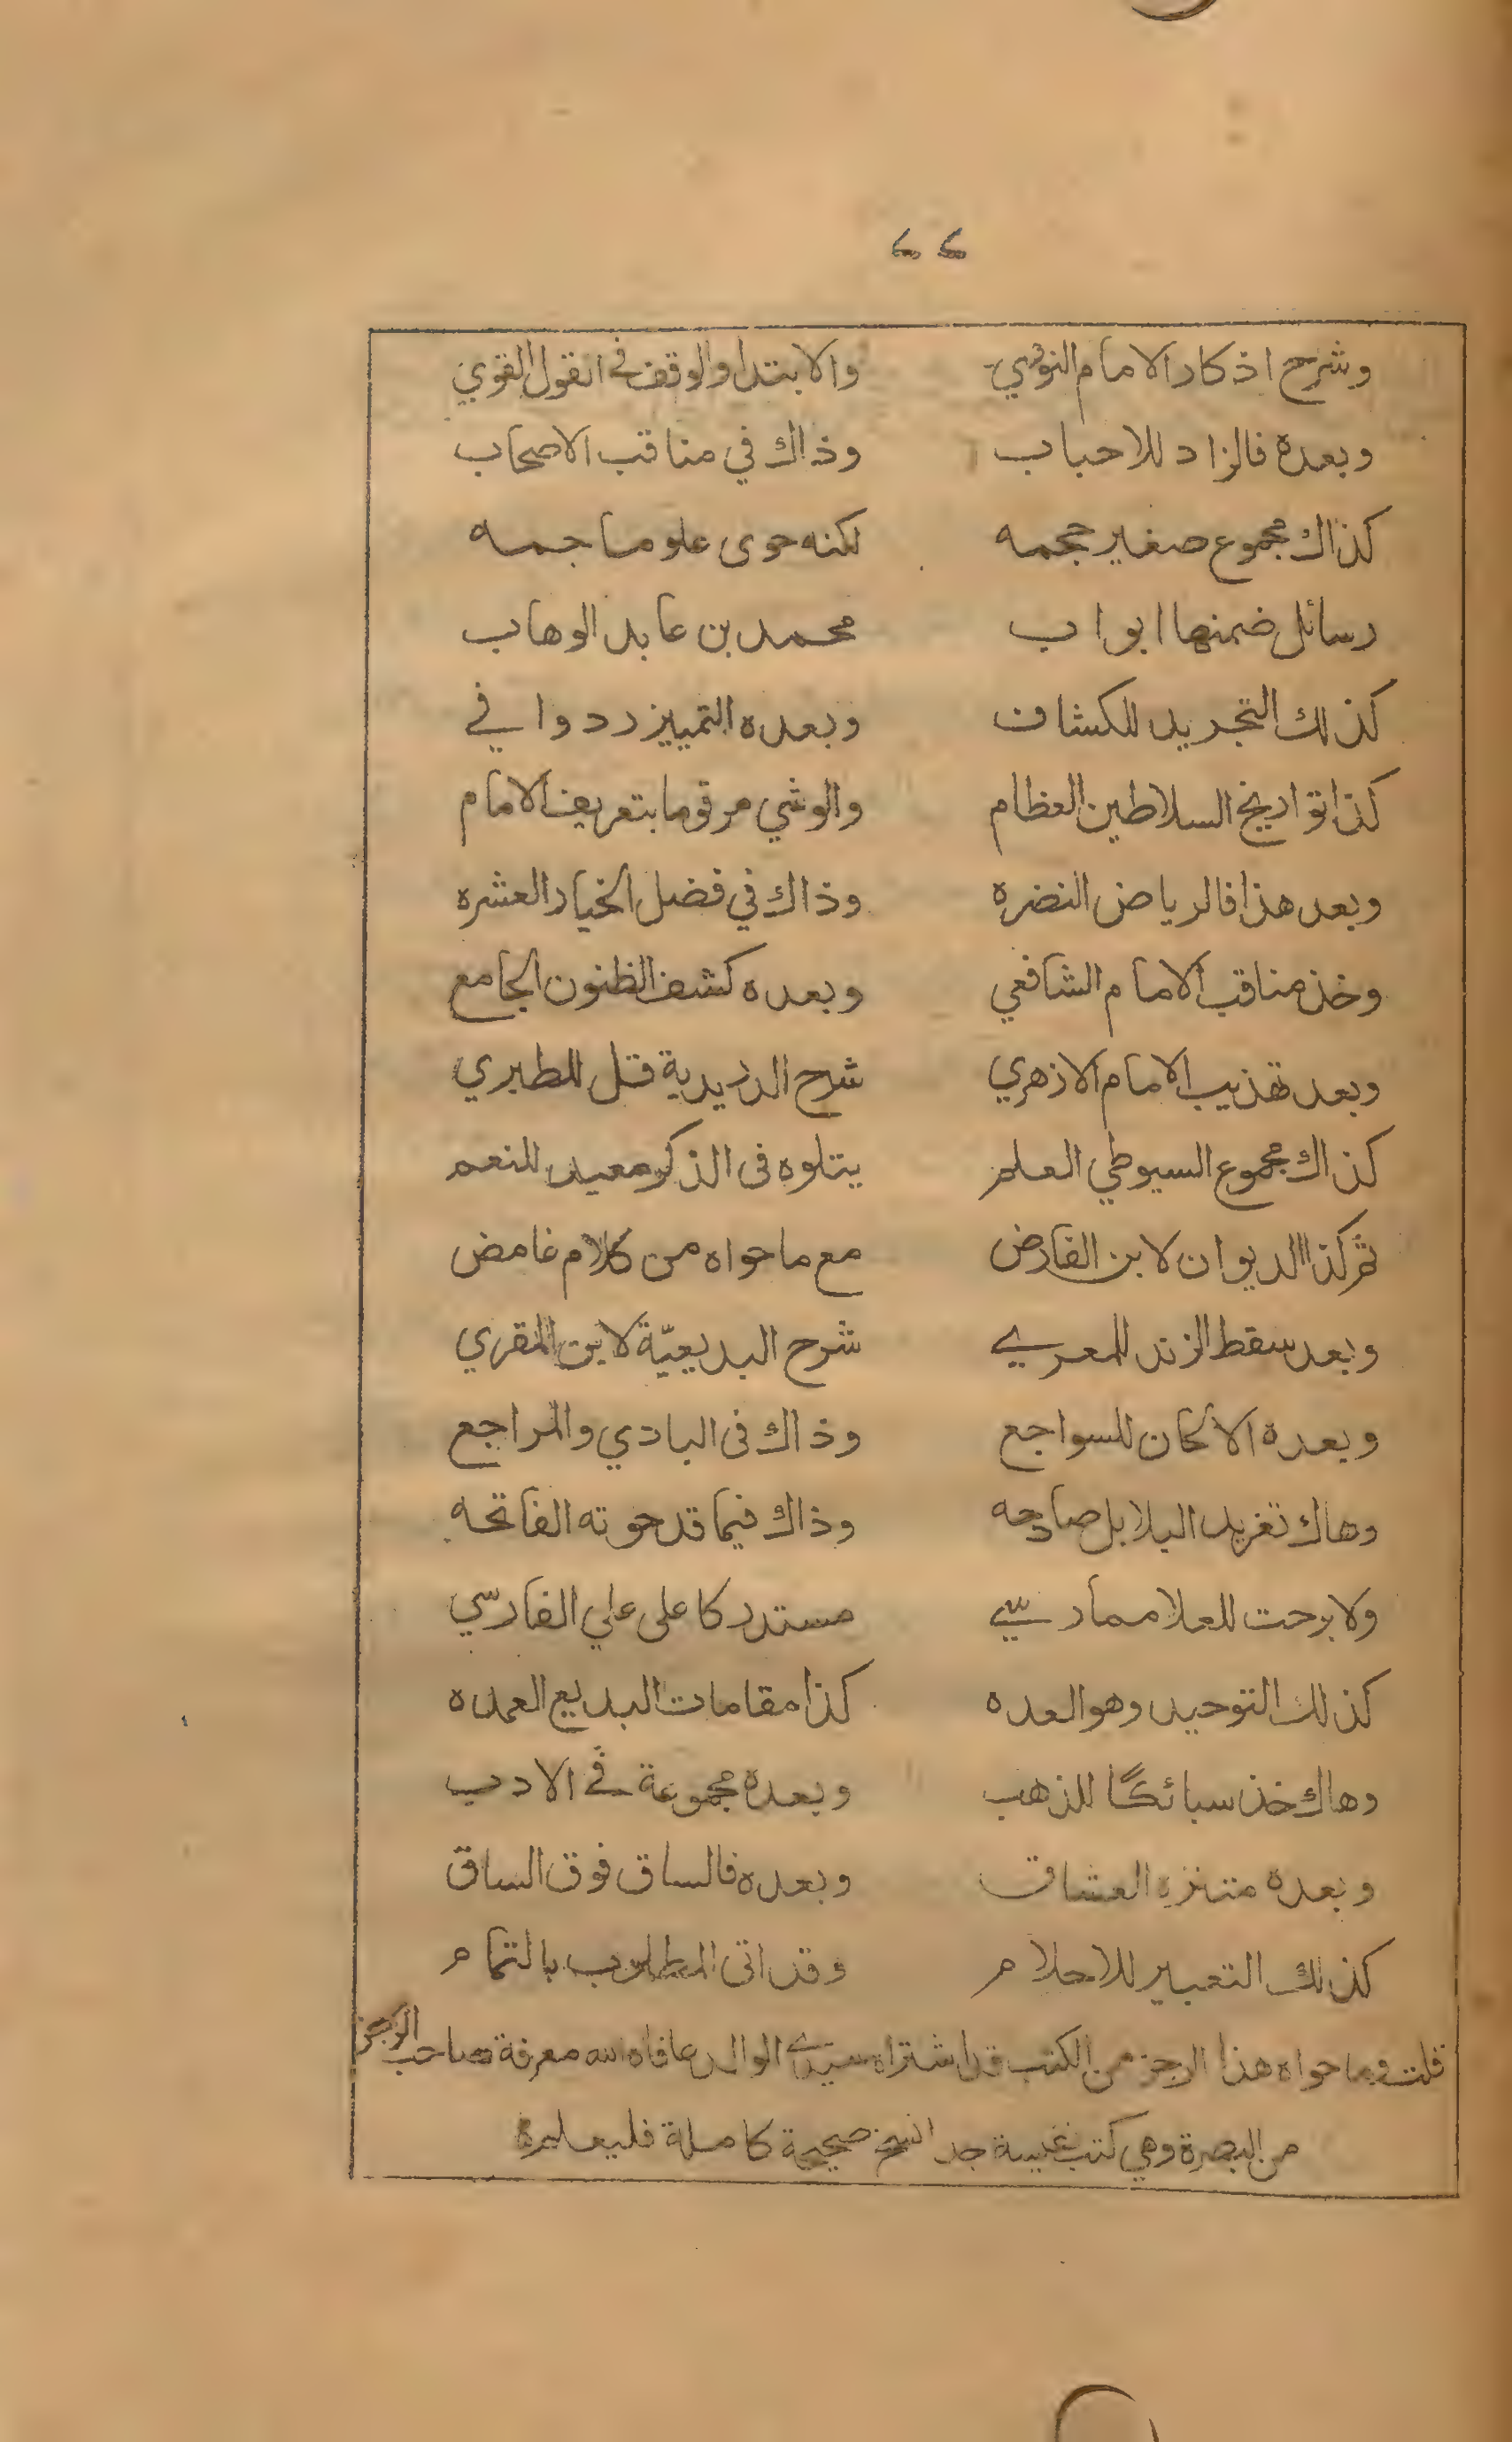 ٢٢
وشرح اذكار الامام النووي والابتدا والوقف في القول القوي
وبعده فالزاد للاحباب وذاك في مناقب الاصحاب
كذاك مجموع صغير حجمه لكنه حوى علوما جمه
رسائل ضمنها ابواب محمد بن عابد الوهاب
كذلك التجريد للكشاف وبعده التمييز رد وافي
كذا تواريخ السلاطين العظام والوشي مرقوما بتعريف الامام
وبعد هذا فالرياض النضره وذاك في فضل الخيار العشره
وخذ مناقب الامام الشافعي وبعده كشف الظنون الجامع
وبعد تهذيب الامام الازهري شرح الدريدية قل للطبري
كذاك مجموع السيوطي العلم يتلوه فى الذكر معيد للنعم
ثم كذا الديوان لابن الفارض مع ما حواه من كلام غامض
وبعد سقط الزند للمعري شرح البديعيّة لابن المقري
وبعده الالحان للسواجع وذاك فى البادي والمراجع
وهاك تغريد البلابل صادحه وذاك فيما قد حوته الفاتحه
ولا برحت للعلا ممارسي مستدركا على علي الفارسي
كذلك التوحيد وهو العده كذا مقامات البديع العمده
وهاك خذ سبائكًا للذهب وبعده مجموعة في الادب
وبعده متنزه العشاق وبعده فالساق فوق الساق
كذلك التعبير للاحلام وقد اتى المطلوب بالتمام
قلت وما حواه هذا الرجز من الكتب قد اشتراه سيدي الوالد عافاه الله معرفة صاحب الرجز
من البصرة وهي كتب غريبة جدا نسخ صحيحة كاملة فليعلم